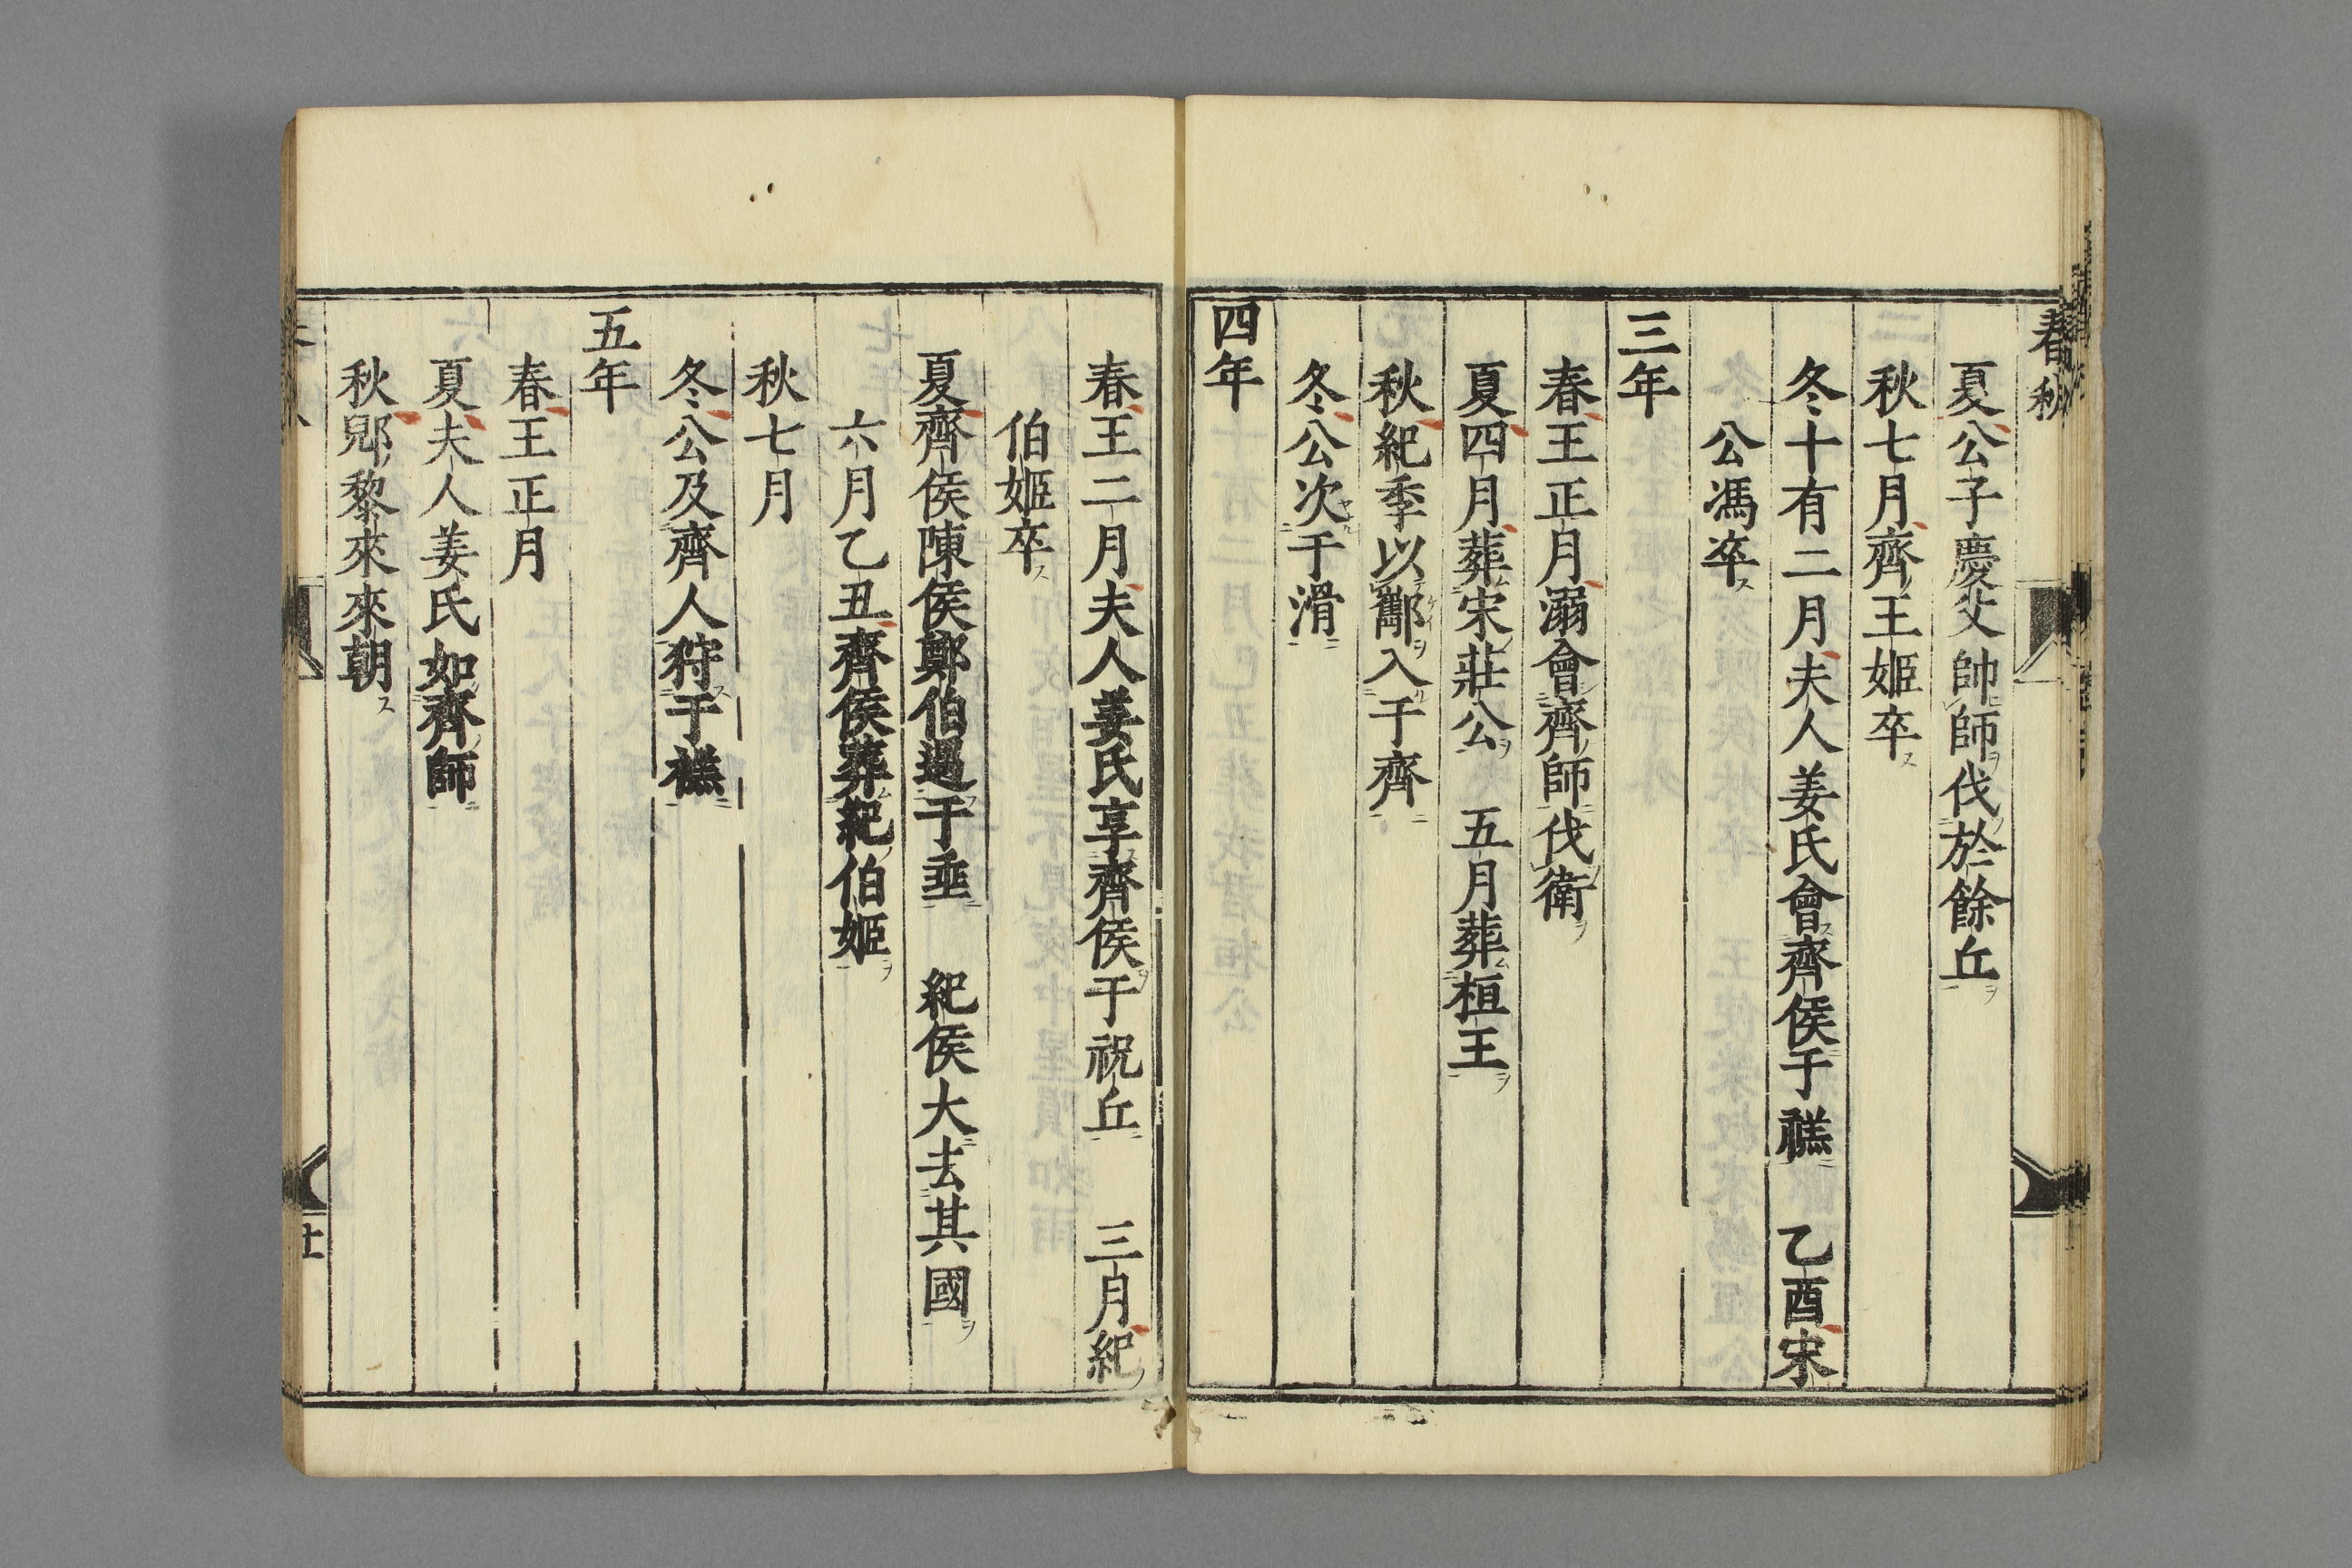 春秋
夏公子慶父帥師伐於餘丘
秋七月齊王姬卒
冬十有二月夫人姜氏會齊侯于禚　乙酉宋
公馮卒
三年
春王正月溺會齊師伐衛
夏四月葬宋莊公　五月葬桓王
秋紀季以酅入于齊
冬公次于滑
四年
春王二月夫人姜氏享齊侯于祝丘　三月紀
伯姬卒
夏齊侯陳侯鄭伯遇于垂　紀侯大去其國
六月乙丑齊侯葬紀伯姬
秋七月
冬公及齊人狩于禚
五年
春王正月
夏夫人姜氏如齊師
秋郳黎來來朝